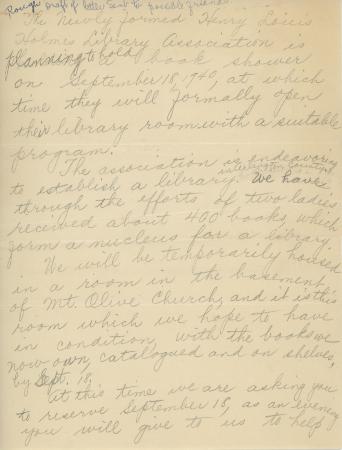 Rough draft of letter sent to possible friends
The newly formed Henry Louis
Holmes Library Association is
planning to hold a book shower
on September 18, 1940, at which
time they will formally open
their library room with a suitable
program.
The association is endeavoring
to establish a library in
We have
through the efforts of two ladies
received about 400 books, which
form a nucleus for a library.
We will be temporarily housed
in a room in the basement
of Mt. Olive Church, and it is this
room which we hope to have
in condition, with the books we
now own, catalogued and on shelves,
by Sept. 18,
At this time we are asking you
to reserve September 18, as an evening
you will give to us to help